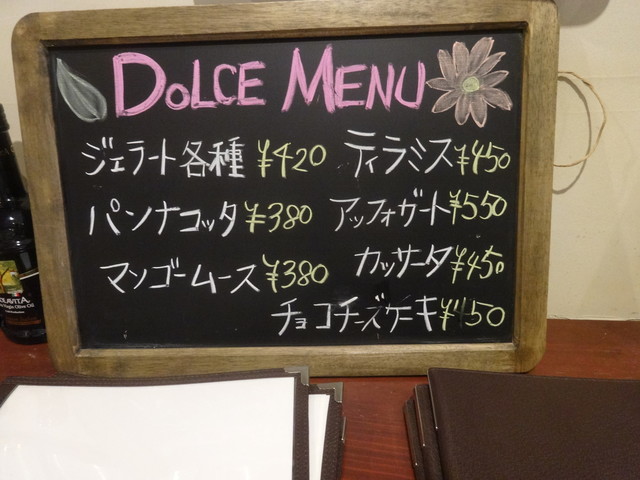 DOLCE MENU
ジェラート各種 ¥420
ティラミス ¥450
パンナコッタ ¥380
アッフォガート ¥550
マンゴームース ¥380
カッサータ ¥450
チョコチーズケーキ ¥450